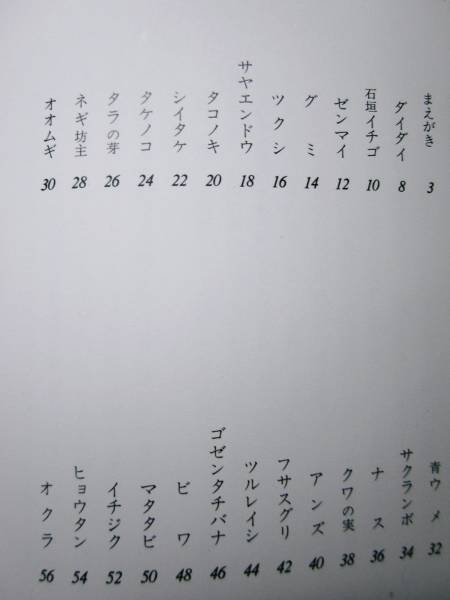 まえがき 3
ダイダイ 8
石垣イチゴ 10
ゼンマイ 12
グミ 14
ツクシ 16
サヤエンドウ 18
タコノキ 20
シイタケ 22
タケノコ 24
タラの芽 26
ネギ坊主 28
オオムギ 30
青ウメ 32
サクランボ 34
ナス 36
クワの実 38
アンズ 40
フサスグリ 42
ツルレイシ 44
ゴゼンタチバナ 46
ビワ 48
マタタビ 50
イチジク 52
ヒョウタン 54
オクラ 56